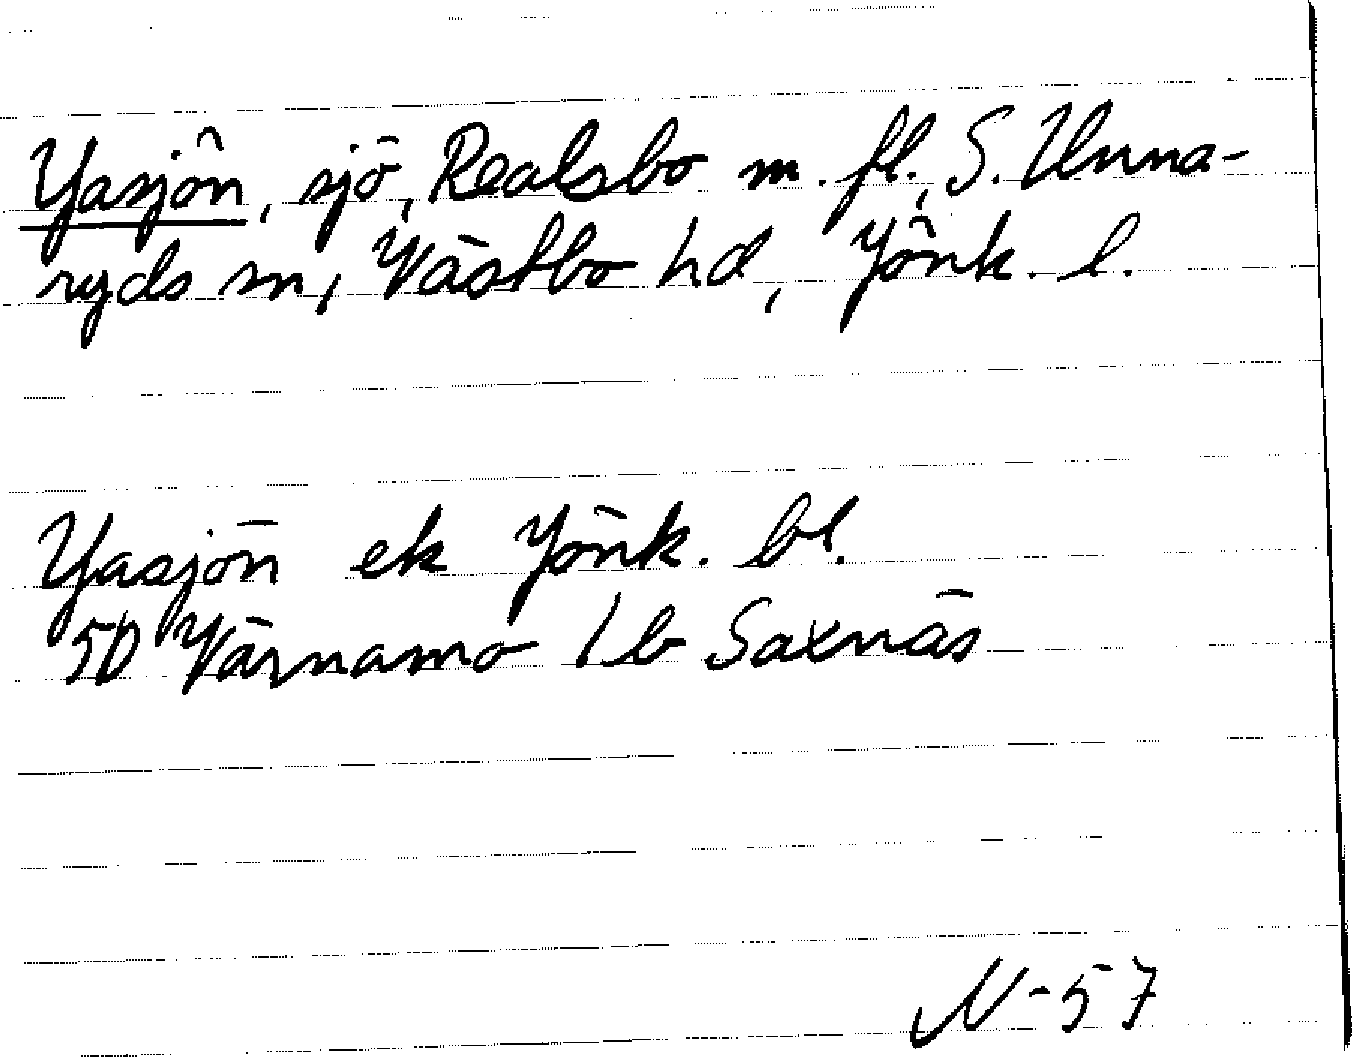 Yasjön, sjö, Realsbo m. fl., S. Unna-
ryds sn, Västbo hd, Jönk. l.
Yasjön ek Jönk. bl.
5D Värnamo 1b Saxnäs
N-57